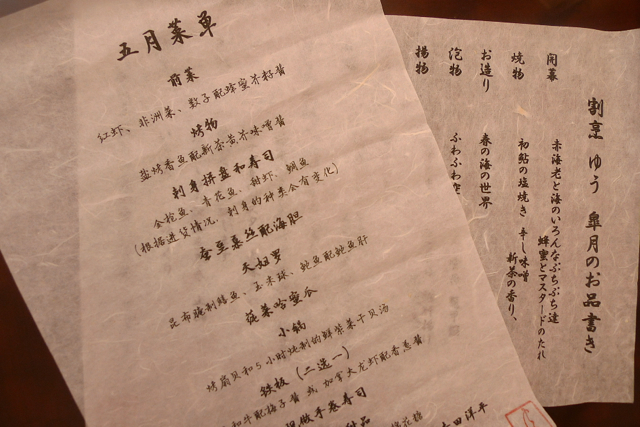 五月菜单
前菜
红虾、非洲菜、数子配球蜜芥籽酱
烤物
盐烤香鱼配新茶黄芥味噌酱
刺身拼盘和寿司
金枪鱼、青花鱼、甜虾、鲷鱼
(根据进货情况，刺身的种类会有变化)
蚕豆蒸丝配海胆
天妇罗
昆布腌制鳕鱼、玉米球、鲍鱼配鲍鱼肝
菠菜哈蜜瓜
小锅
烤扇贝和5小时炖制的鲜紫菜干贝汤
铁板（二选一）
和牛配梅子酱 或 加拿大龙虾配香葱酱
手卷寿司
割烹 ゆう 皐月のお品書き
開幕
赤海老と海のいろんなぷちぷち達
蜂蜜とマスタードのたれ
焼物
初鮎の塩焼き 辛し味噌
新茶の香り、
お造り
春の海の世界
泡物
ふわふわ
揚物